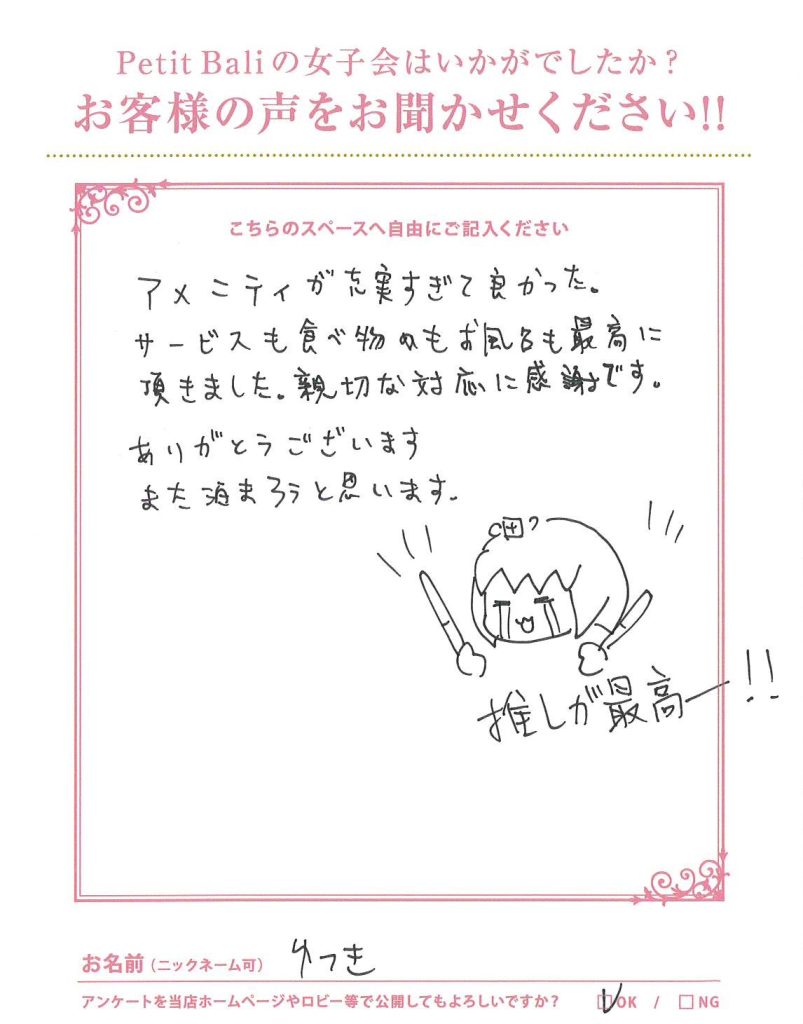 Petit Baliの女子会はいかがでしたか？
お客様の声をお聞かせください!!
こちらのスペースへ自由にご記入ください
アメニティが充実すぎて良かった。
サービスも食べ物もお風呂も最高に
頂きました。親切な対応に感謝です。
ありがとうございます
また泊まろうと思います。
推しが最高ー!!
お名前（ニックネーム可） ゆつき
アンケートを当店ホームページやロビー等で公開してもよろしいですか？ ☑OK / □NG